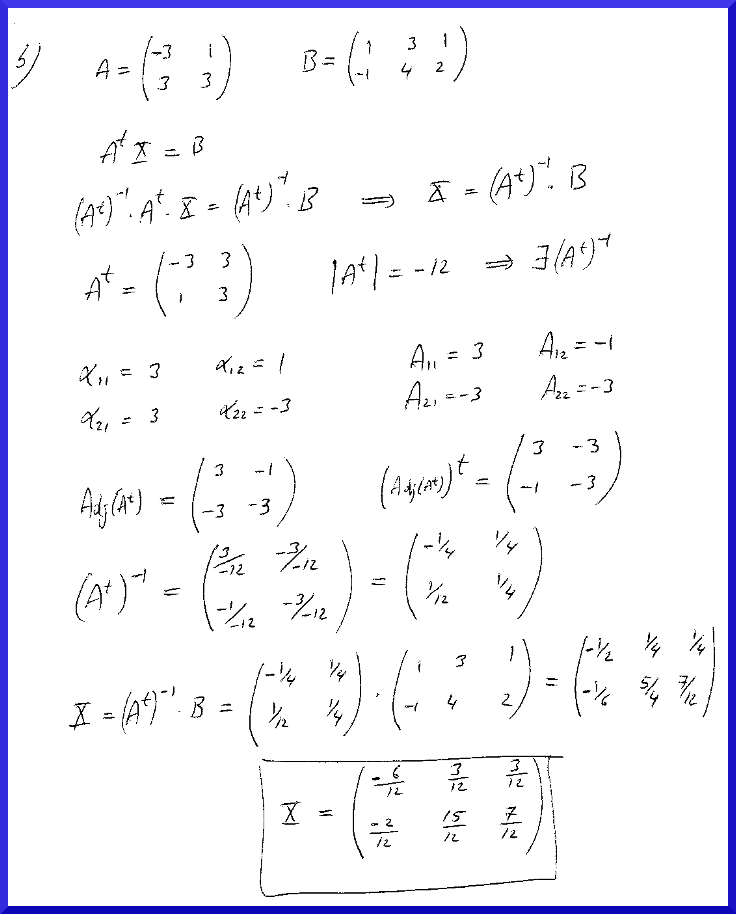 5) A = (-3 1 ; 3 3) B = (1 3 1 ; -1 4 2)
Aᵗ X = B
(Aᵗ)⁻¹ · Aᵗ · X = (Aᵗ)⁻¹ · B ⟹ X = (Aᵗ)⁻¹ · B
Aᵗ = (-3 3 ; 1 3) |Aᵗ| = -12 ⟹ ∃(Aᵗ)⁻¹
α₁₁ = 3 α₁₂ = 1 A₁₁ = 3 A₁₂ = -1
α₂₁ = 3 α₂₂ = -3 A₂₁ = -3 A₂₂ = -3
Adj(Aᵗ) = (3 -1 ; -3 -3) (Adj(Aᵗ))ᵗ = (3 -3 ; -1 -3)
(Aᵗ)⁻¹ = (3/-12 -3/-12 ; -1/-12 -3/-12) = (-1/4 1/4 ; 1/12 1/4)
X = (Aᵗ)⁻¹ · B = (-1/4 1/4 ; 1/12 1/4) · (1 3 1 ; -1 4 2) = (-1/2 1/4 1/4 ; -1/6 5/4 7/12)
X = (-6/12 3/12 3/12 ; -2/12 15/12 7/12)